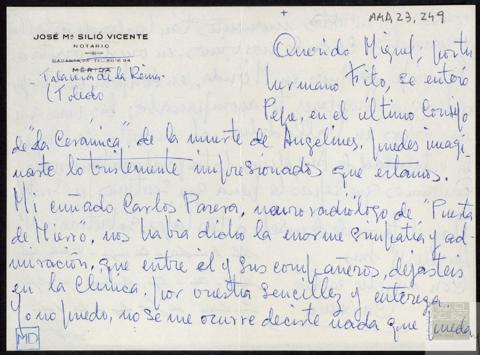 AMD, 23, 249
JOSÉ Mª SILIÓ VICENTE
NOTARIO
MÉRIDA
Talavera de la Reina
(Toledo)
Querido Miguel: por tu
hermano Tito, se enteró
Pepe, en el último Consejo
de "La Cerámica", de la muerte de Angelines, puedes imagi-
narte lo tristemente impresionados que estamos.
Mi cuñado Carlos Parera, neuroradiólogo de "Puerta
de Hierro", nos había dicho la enorme simpatía y ad-
miración, que entre él y sus compañeros, dejásteis
en la Clínica, por vuestra sencillez y entereza.
Yo no puedo, no se me ocurre decirte nada que pueda
MD